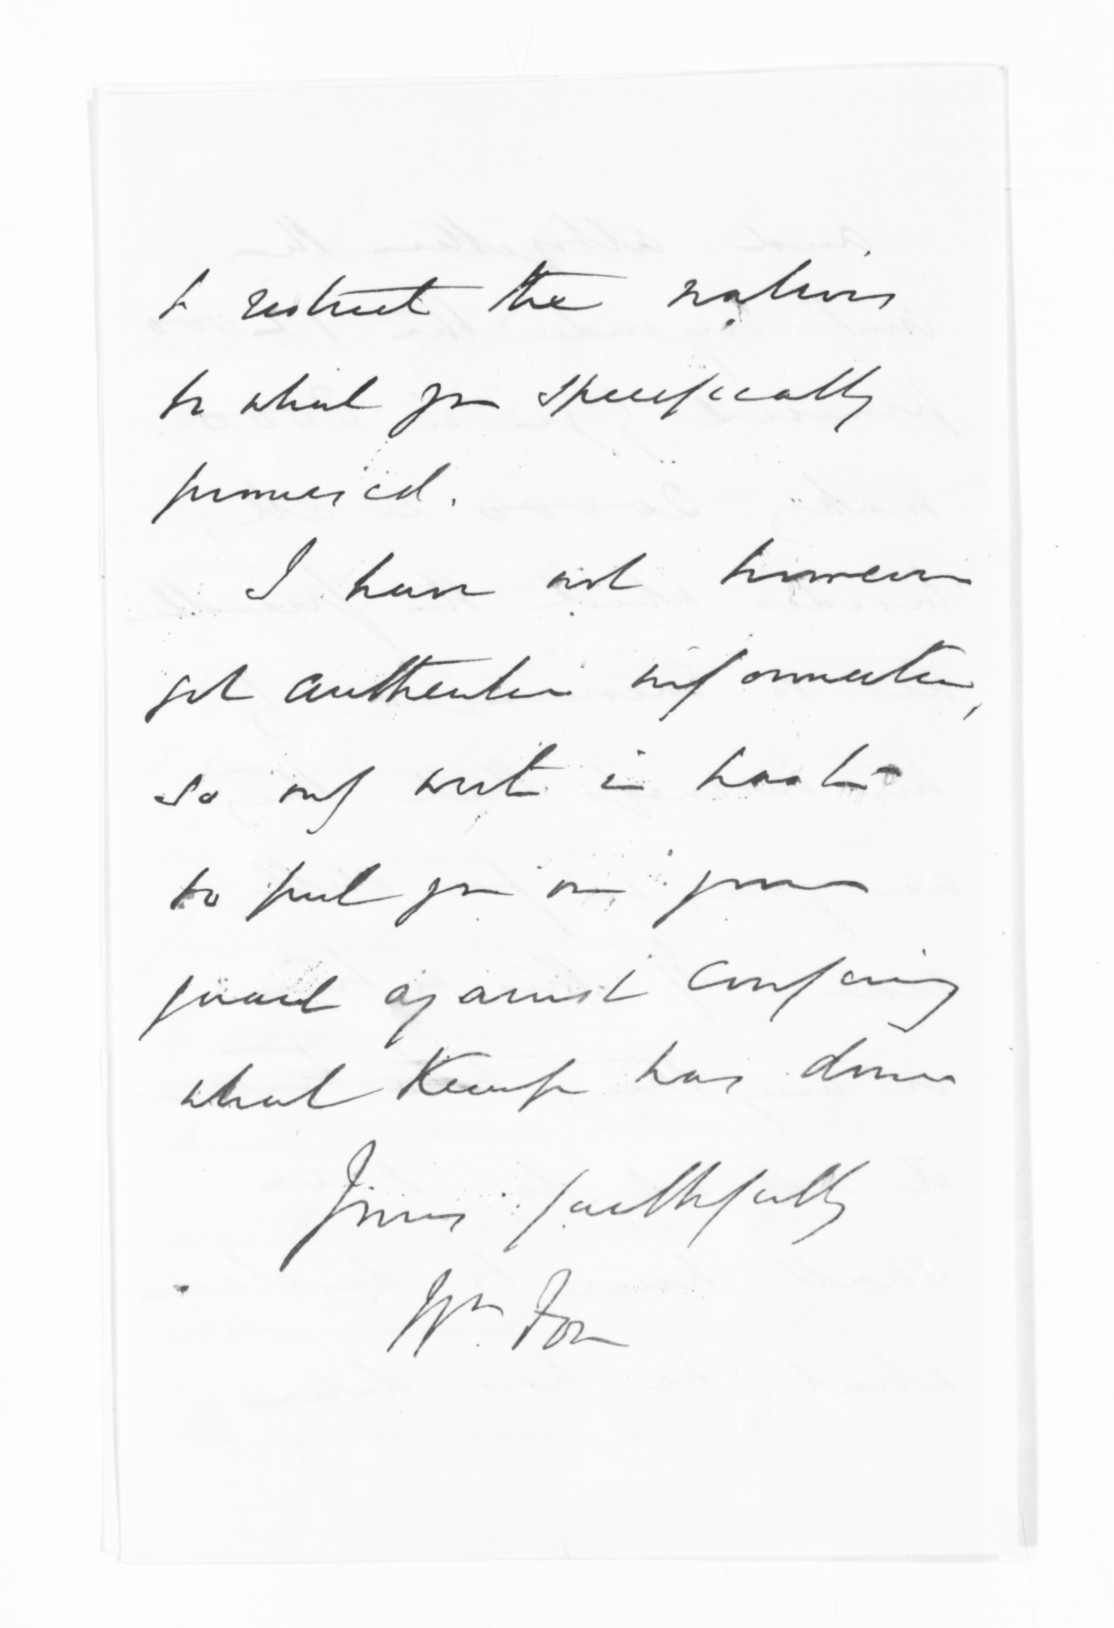 & restrict the natives
to what you specifically
promised.
I have not however
got authentic information,
so only write in haste
to put you on your
guard against confirming
what Kemp has done
Yours faithfully
Wm. Fox